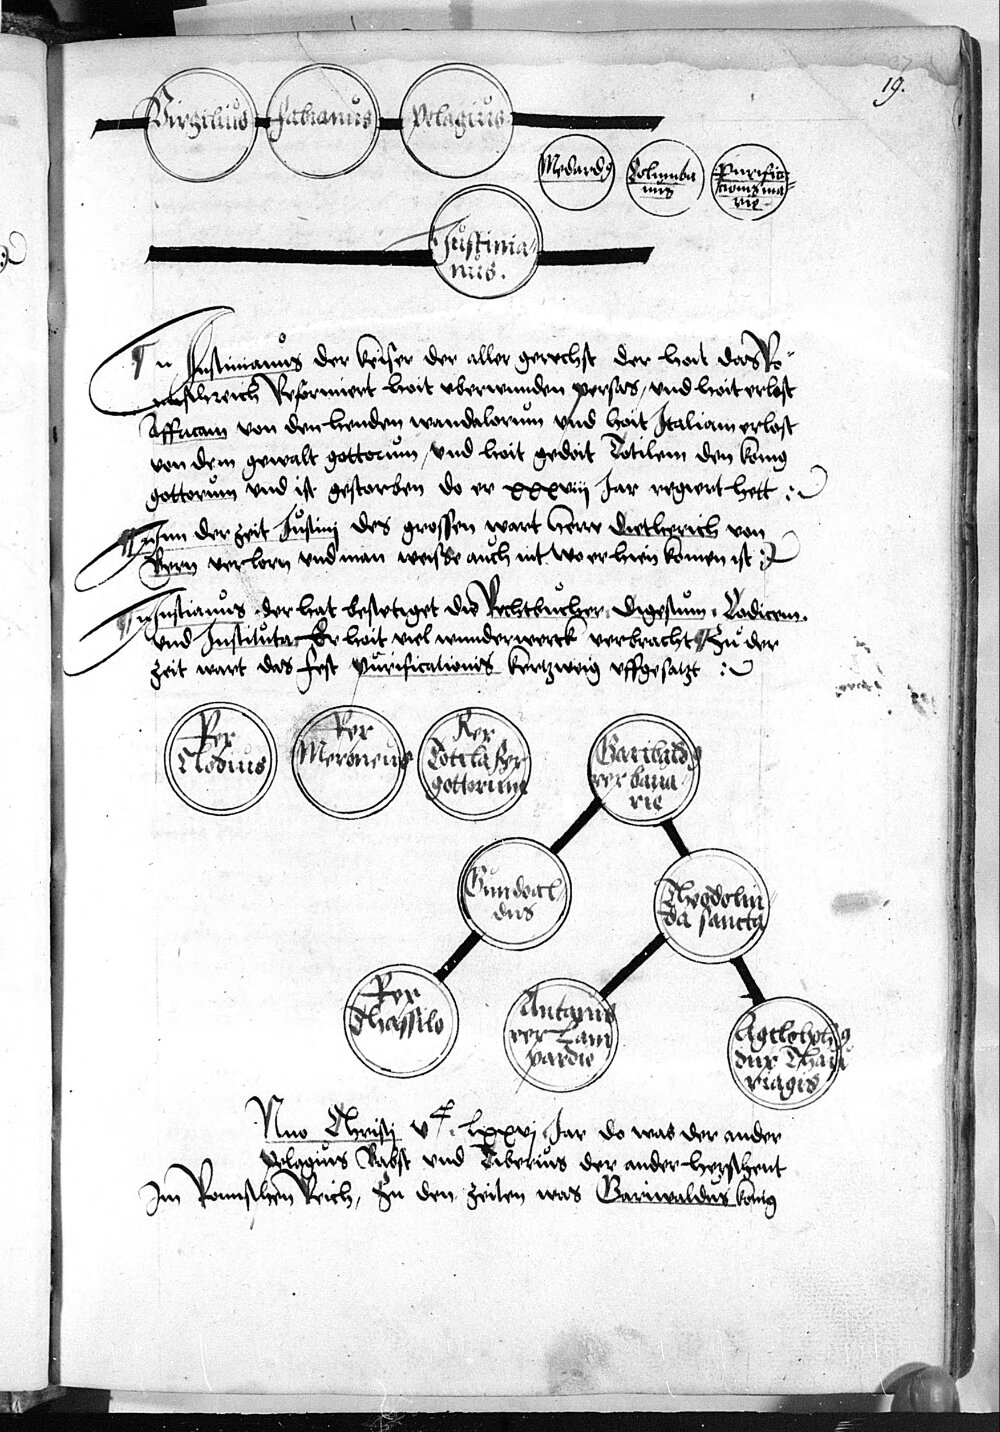 19.
Virgilius Fabianus Pelagius
Medardꝰ Columba
nus
Purifica
tionis ma
rie
Justinia
nus.
¶ Justinianus der keiser der aller gerechst der hoit das Ro-
mischreich Reformiert hoit vberwunden persas, vnd hoit erlost
Affricam von den henden wandalorum vnd hoit Italiam erlost
von dem gewalt gottorum, vnd hoit gedoit Totilem den konig
gottorum vnd ist gestorben do er xxxviij Jar regiert hett :
¶ Inn der zeit Justinj des grossen wart herr Dietherich von
Bern verlorn vnd man weisse auch nit wo er hien komen ist :
¶ Justianus der hat bestetiget die Rechtbucher, Digestum, Codicem.
vnd Instituta Er hoit viel wunderwerck verbracht ¶ Zu der
zeit wart das fest purificationis kertzweig vffgesatzt :
Rex
Clodius
Rex
Meroneus
Rex
Totila Rex
gottorum
Garibaldꝰ
rex baua
rie
Gundoal
dus
Theodolin
da sancta
Rex
Thassilo
Antarius
rex Lam
pardie
dux Thau
riagis
ANno Christj vᶜ. lxxvj Jar do was der ander
pelagius Babst vnd Tiberius der ander herschent
Im Romischen Reich, Zu den zeiten was Gariwaldus konig